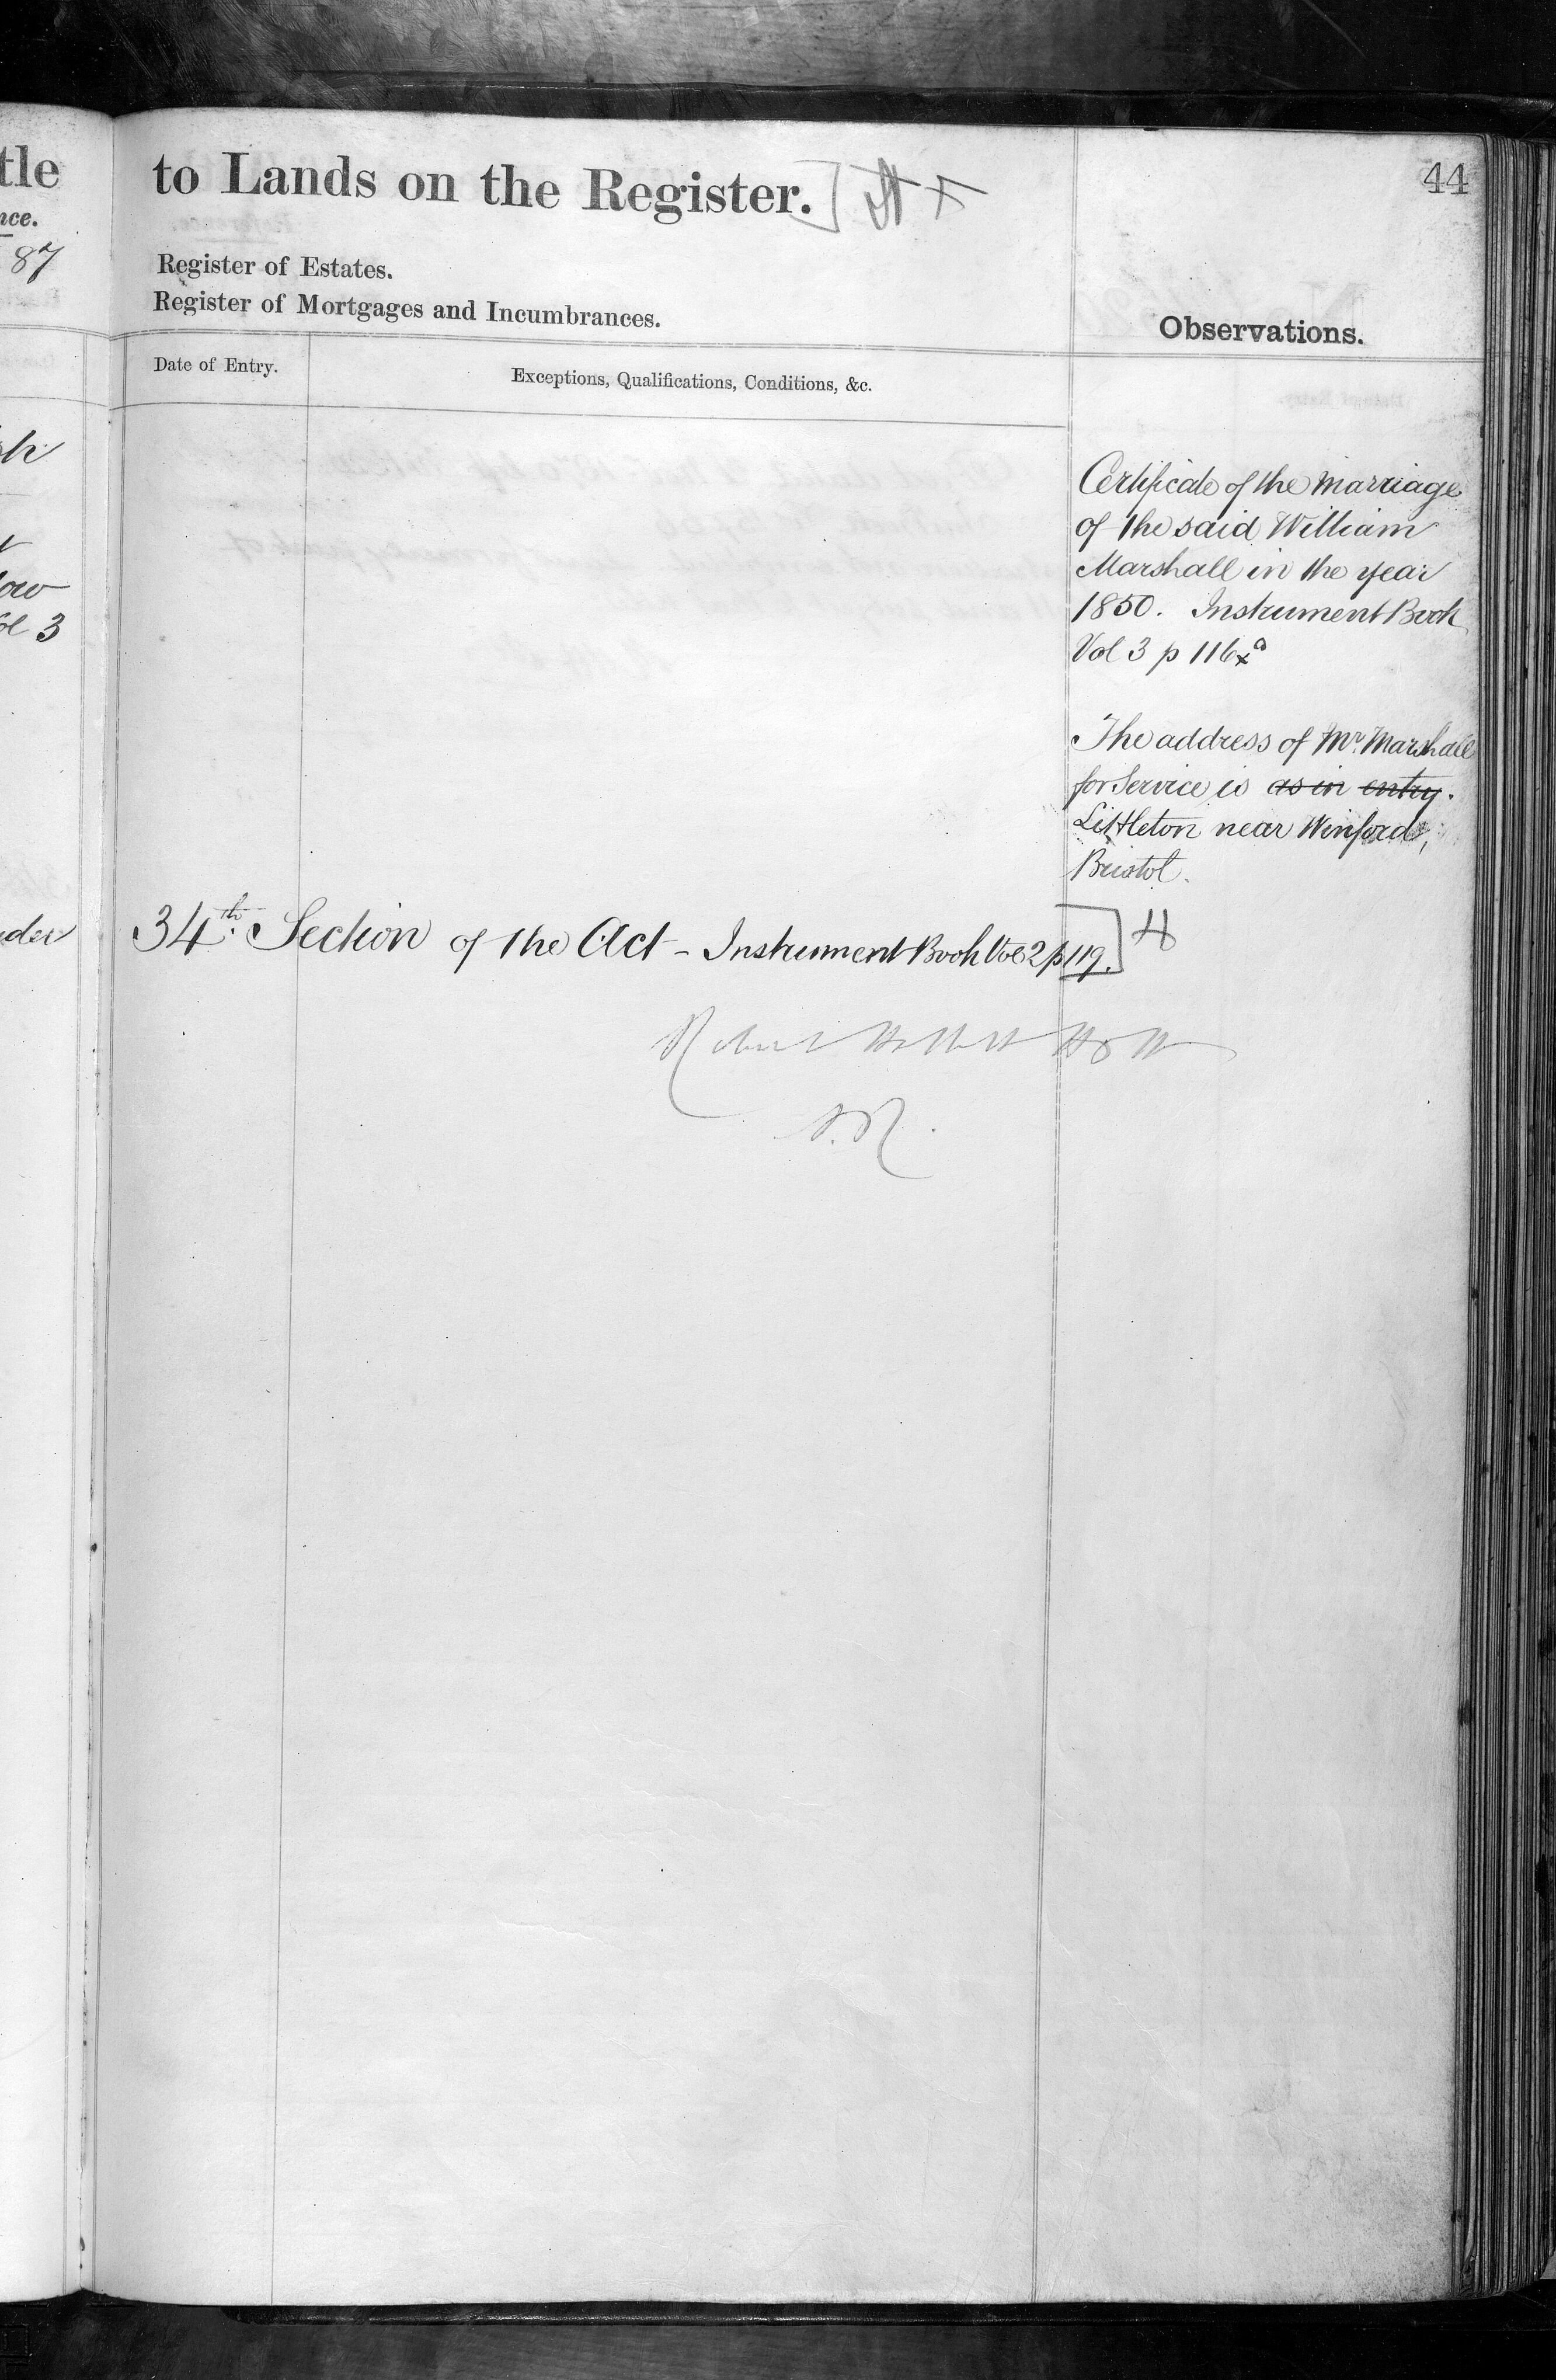 tle
nce.
87
ow
ol 3
nder
to Lands on the Register.
44
Register of Estates.
Register of Mortgages and Incumbrances.
Observations.
Date of Entry.
Exceptions, Qualifications, Conditions, &c.
Certificate of the marriage
of the said William
Marshall in the year
1850. Instrument Book
Vol 3 p 116x a
The address of Mr. Marshall
for Service is as in entry.
Littleton near Winford,
Bristol.
34th. Section of the Act - Instrument Book Vol 2 p 119.
Robert Hallett Holt
A.R.